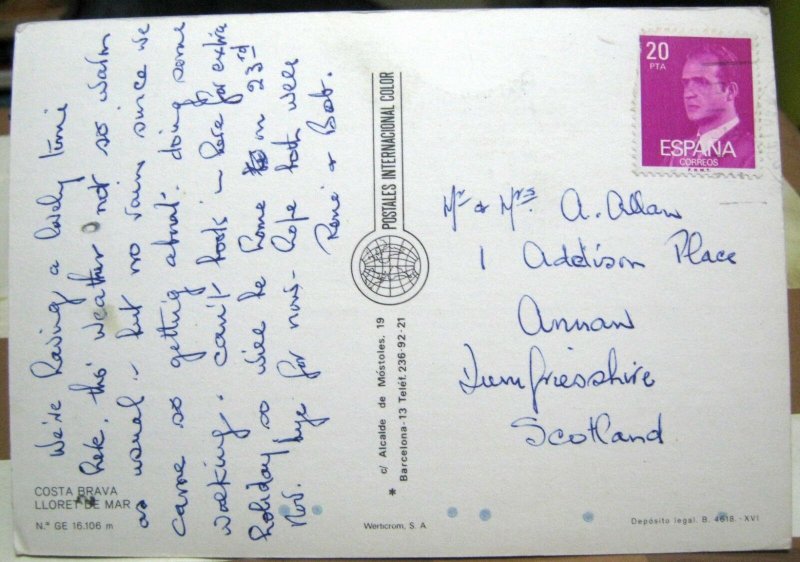 We're having a lovely time
here, tho' weather not so warm
as usual - but no rain since we
came so getting about doing some
walking. can't book in here for extra
holiday so will be home on 23rd
Nov. bye for now - hope both well
René & Bob.
COSTA BRAVA
LLORET DE MAR
N.º GE 16.106 m
POSTALES INTERNACIONAL COLOR
* c/ Alcalde de Móstoles, 19
Barcelona-13 Teléf. 236-92-21
Werticrom, S. A.
20
PTA
ESPAÑA
CORREOS
F.N.M.T.
Mr & Mrs. A. Allan
1 Addison Place
Annan
Dumfriesshire
Scotland
Depósito legal. B. 4618.-XVI